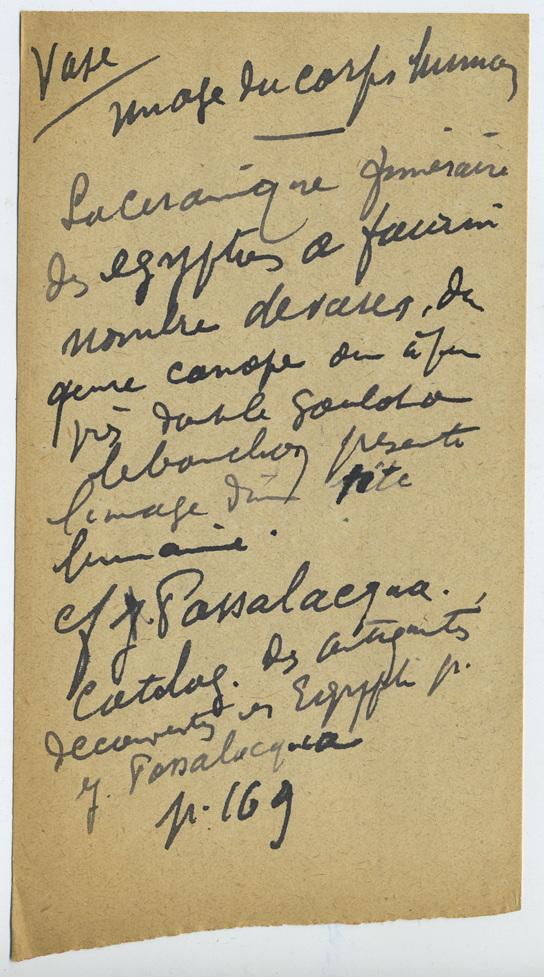 Vase
image du corps humain
La ceramique funéraire
des egyptes a fourni
nombre de vases, du
genre canope ou à peu
près dont le goulot ou
le bouchon présente
l'image d'une tête
humaine.
cf J. Passalacqua.
Catalog. des antiquités
decouvertes en Egypte p.
J. Passalacqua
p. 169